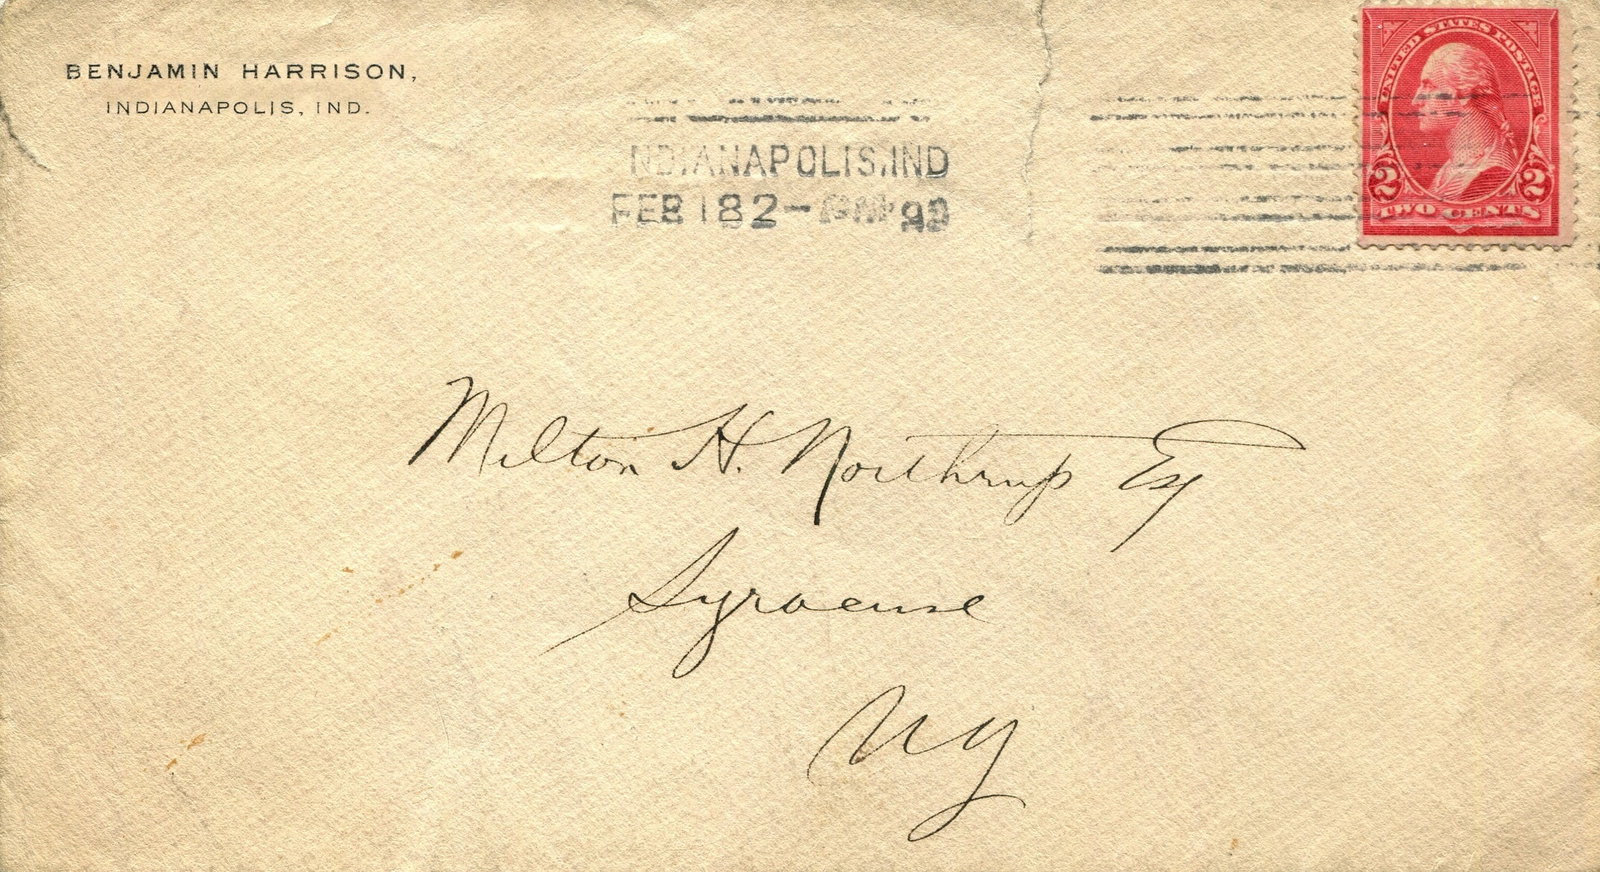 BENJAMIN HARRISON,
INDIANAPOLIS, IND.
NDIANAPOLIS, IND
FEB 18 2-
UNITED STATES POSTAGE
2 2
TWO CENTS
Milton H. Northrup Esq
Syracuse
NY